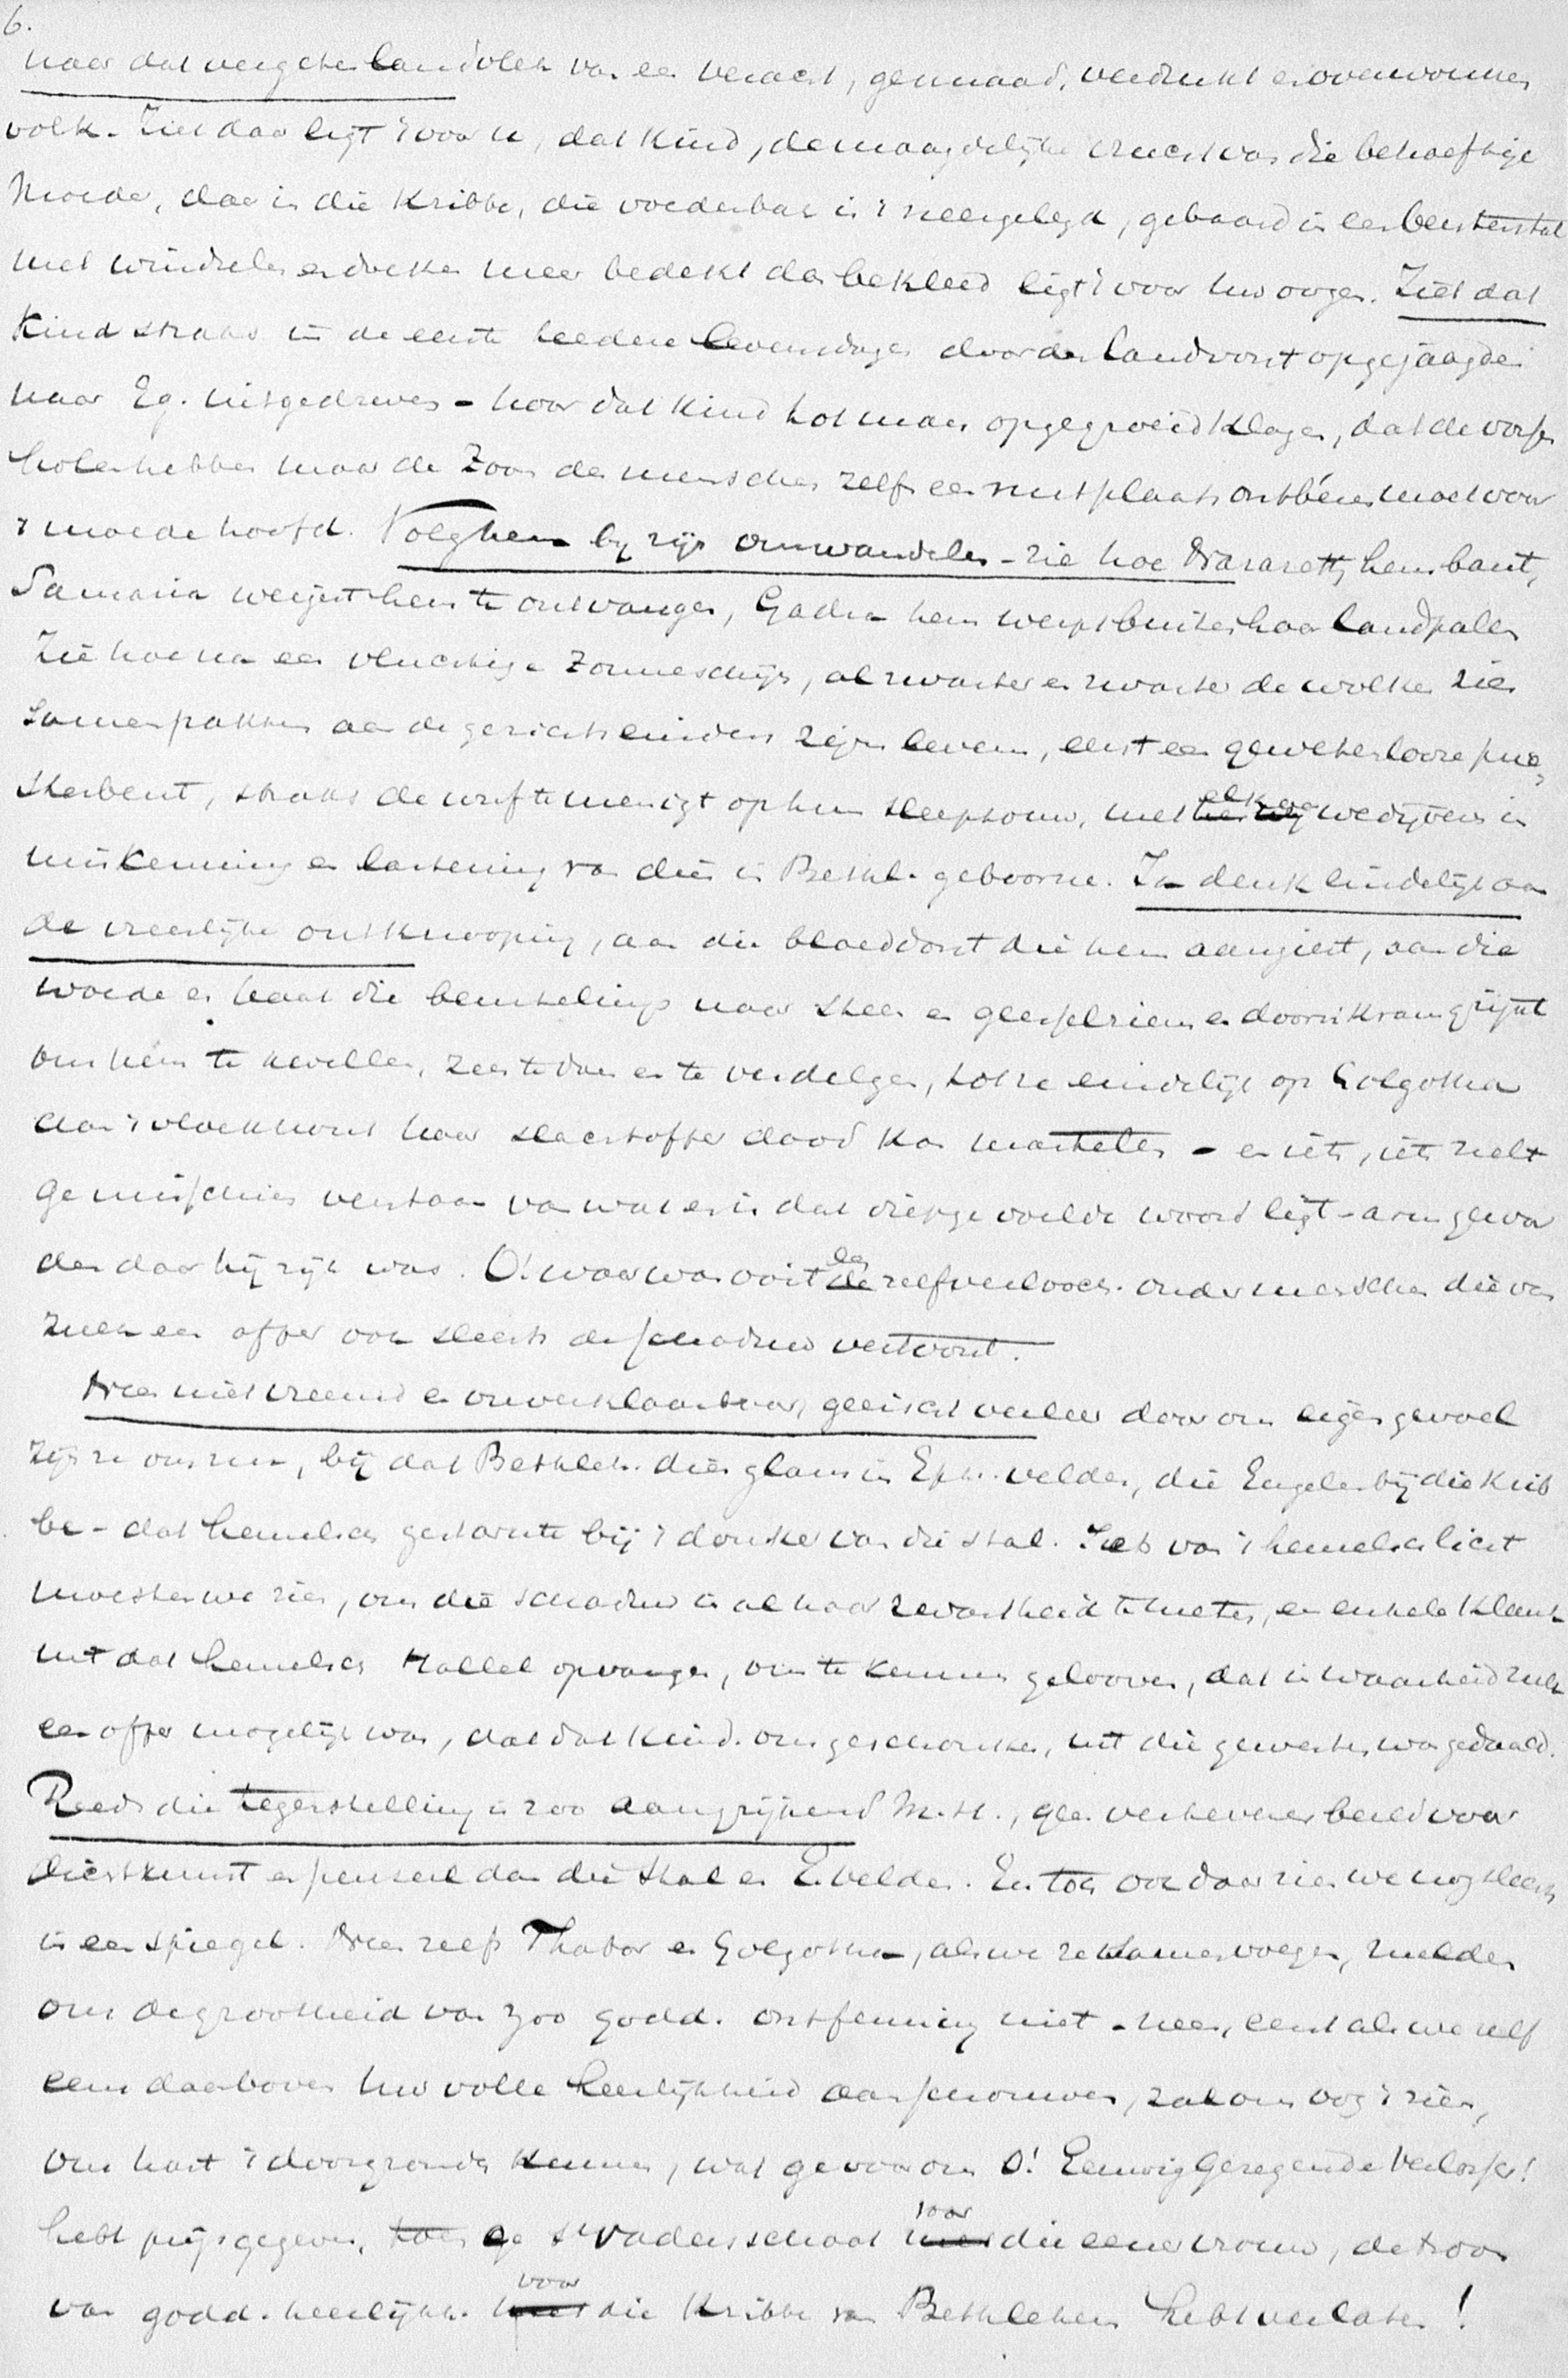 6.
naar dat vergeten landvlek van een veracht, gesmaad, verdrukt en overwonnen
volk. Ziet daar ligt 't voor u, dat kind, de maagdelijke vrucht van die behoeftige
Moeder, daar in die Kribbe, die voederbak is 't neergelegd, gebaard in een beestenstal
met windselen en doeken meer bedekt dan bekleed ligt 't voor uw oogen. Ziet dat
Kind straks in de eerste teedere levensdagen door den Landvorst opgejaagd en
naar Eg. uitgedreven - hoor dat kind tot man opgegroeid klagen, dat de vossen
holen hebben maar de Zoon des menschen zelfs een rustplaats ontbéren moet voor
't moede hoofd. Volg hem bij zijn omwandelen - zie hoe Nazareth hem bant,
Samaria weigert hem te ontvangen, Gadra hem werpt buiten haar landpalen
Zie hoe na een vluchtige Zonneschijn, al zwarter en zwarter de wolken zich
samenpakken aan de gezichteinders zijns levens, eerst een gewetenlooze prie
sterbent, straks de wufte menigt op hun sleeptouw, met elkaar wedijveren in
miskenning en lastering van dien in Bethl. geboorne. Ja denk eindelijk aan
de vreeslijke ontknooping, aan die bloeddorst die hem aangiert, aan die
woede en haat die beurtelings naar steen en geeselriem en doornkrans grijpt
om hem te kwellen, zeer te doen en te verdelgen, tot ze eindelijk op Golgotha
aan 't vloekhout haar slachtoffer dood kon martelen - en iets, iets zult
ge misschien verstaan van wat er in dat diepgevoelde woord ligt - arm gewor
den daar hij rijk was. O! waar was ooit een zelfverlooch. onder menschen die van
zulk een offer ook slechts de schaduw vertoont.
Neen niet vreemd en onverklaarbaar, geeischt veeleer door ons eigen gevoel
zijn ze ons zien, bij dat Bethleh. dien glans in Eph. velden, die Engelen bij die Krib
be - dat hemelsch gestarnte bij 't donker van die stal. Iets van 't hemelsch licht
moesten we zien, om die schaduw in al haar zwartheid te meten, en enkele klank
uit dat hemelsch Hallel opvangen, om te kunnen gelooven, dat in waarheid zulk
een offer mogelijk was, dat dat kind ons geschonken, uit die gewesten was gedaald.
Reeds die tegenstelling is zoo aangrijpend M.H., geen verhevener beeld voor
dichtkunst en penseel dan die stal en E. velden. En toch ook daar zien we nog slechts
in een spiegel. Neen zelfs Thabor en Golgotha, als we ze samenvoegen, melden
ons de grootheid van zoo godd. ontferming niet - neen, eerst als we zelf
eens daarboven uw volle heerlijkheid aanschouwen, zal ons oog 't zien,
ons hart 't doorgronden kunnen, wat ge voor ons O! Eeuwig Gezegende Verlosser!
hebt prijsgegeven, toen ge s'Vaders schoot voor die eener vrouw, de troon
van godd. heerlijkh. voor die Kribbe van Bethlehem hebt verlaten!